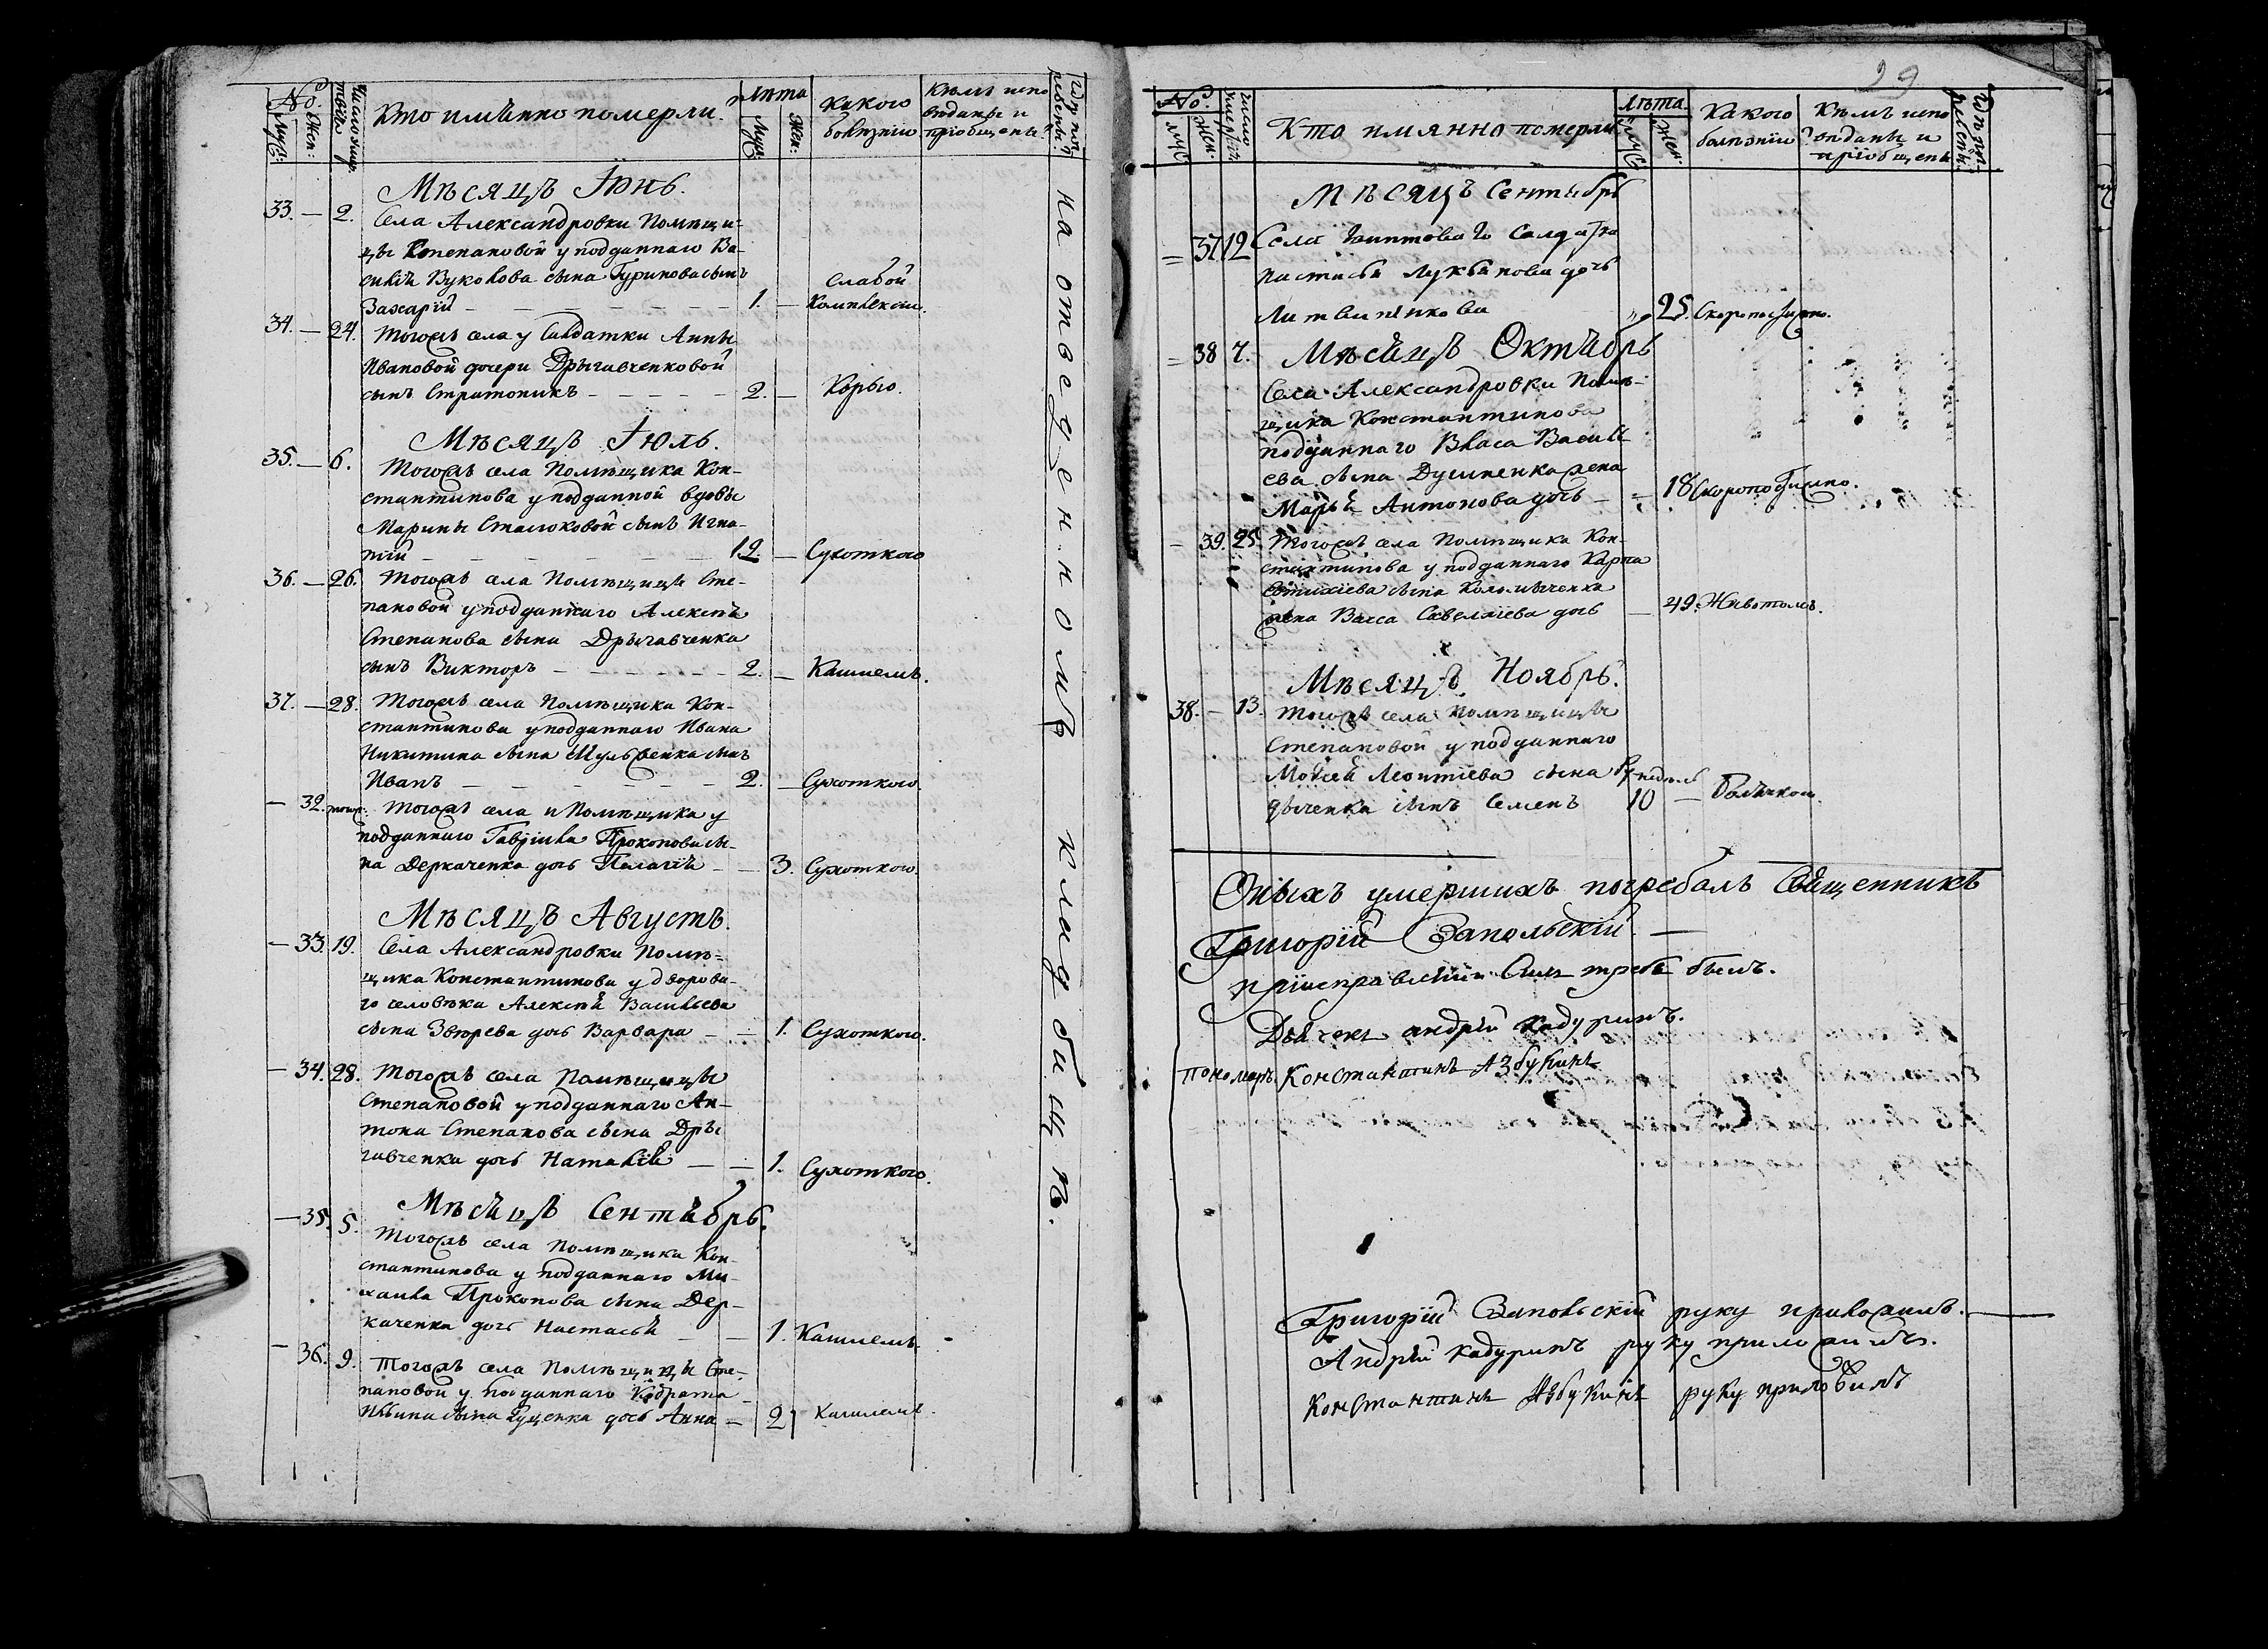 №. Число умер. Кто имѣнно померли. Лѣта Какого Кѣмъ испо
Муж: Жен: Муж: Жен: болѣзнiи вѣданы и
прiобщены
Мѣсяцъ Iюнь.
33. — 2. Села Александровки Помѣщи-
цы Степановой у подданнаго Ва-
силiя Вуколова сына Гуринова сынъ
Захарiй — 1. — слабой Комплексiи.
34. — 24. Тогожъ села у Салдатки Анны
Ивановой дочери Дрыгавченковой
сынъ Стратоникъ — 2. — Корью.
Мѣсяцъ Iюль.
35. — 6. Тогожъ села Помѣщика Кон-
стантинова у подданной вдовы
Марины сынъ Игна-
тiй — 12. — Сухоткою
36. — 26. Тогожъ села Помѣщицы Сте-
пановой у подданнаго Алексѣя
Степанова сына Дрыгавченка
сынъ Викторъ — 2. — Кашлемъ.
37. — 28. Тогожъ села Помѣщика Кон-
стантинова у подданнаго Ивана
Никитина сына сынъ
Иванъ — 2. — Сухоткою.
— 32. тогож: Тогожъ села и Помѣщика у
подданнаго Гаврiила Прокопова сы-
на Деркаченка дочь Пелагiя — 3. Сухоткою.
Мѣсяцъ Августъ.
— 33. 19. Села Александровки Помѣ-
щика Константинова у дворова-
го человѣка Алексѣя Васильева
сына Звѣрева дочь Варвара — 1. Сухоткою.
— 34. 28. Тогожъ села Помѣщицы
Степановой у подданнаго Ан-
тона Степанова сына Дры
гавченка дочь Наталiя — 1. Сухоткою.
Мѣсяцъ Сентябрь.
— 35. 5. Тогожъ села Помѣщика Кон-
стантинова у подданнаго Ми-
хаила Прокопова сына Дер-
каченка дочь Настасья — 1. Кашлемъ.
— 36. 9. Тогожъ села Помѣщицы Сте-
пановой у подданнаго Кодрата
сына дочь Анна — 2 Кашлемъ.
На отведенномъ кладбищѣ.
29
№. Число Кто имянно померли Лѣта. Какого Кѣмъ испо
муж жен. муж жен. болѣзнiи вѣданы и
прiобщены
Мѣсяцъ Сентябрь
= 37 12 Села Салдатка
Настасья Лукьянова дочь
Литвиненкова 25. Скоропостижно.
Мѣсяцъ Октябрь
= 38 7. Села Александровки Помѣ-
щика Константинова
подданнаго Власа Василь
ева сына жена
Марья Антонова дочь — 18 Скоропостижно.
— 39. 25. Тогожъ села Помѣщика Кон-
стантинова у подданнаго Карпа
сына Коломѣйченка
жена Васса Савелiева дочь — 49. Животомъ.
Мѣсяцъ Ноябрь.
38. — 13. Тогожъ села Помѣщицы
Степановой у подданнаго
Моѵсея Леонтiева сына недѣль
сынъ Семенъ 10 —
Оныхъ умершихъ погребалъ Священникъ
Григорiй Запольскiй. —
при исправленiи сихъ требъ былъ.
Дьячекъ андрей Кадуринъ.
пономарь Константинъ Азбукинъ
Григорiй Запольскiй руку приложилъ.
Андрей Кадуринъ руку приложилъ.
Константинъ Азбукинъ руку приложилъ